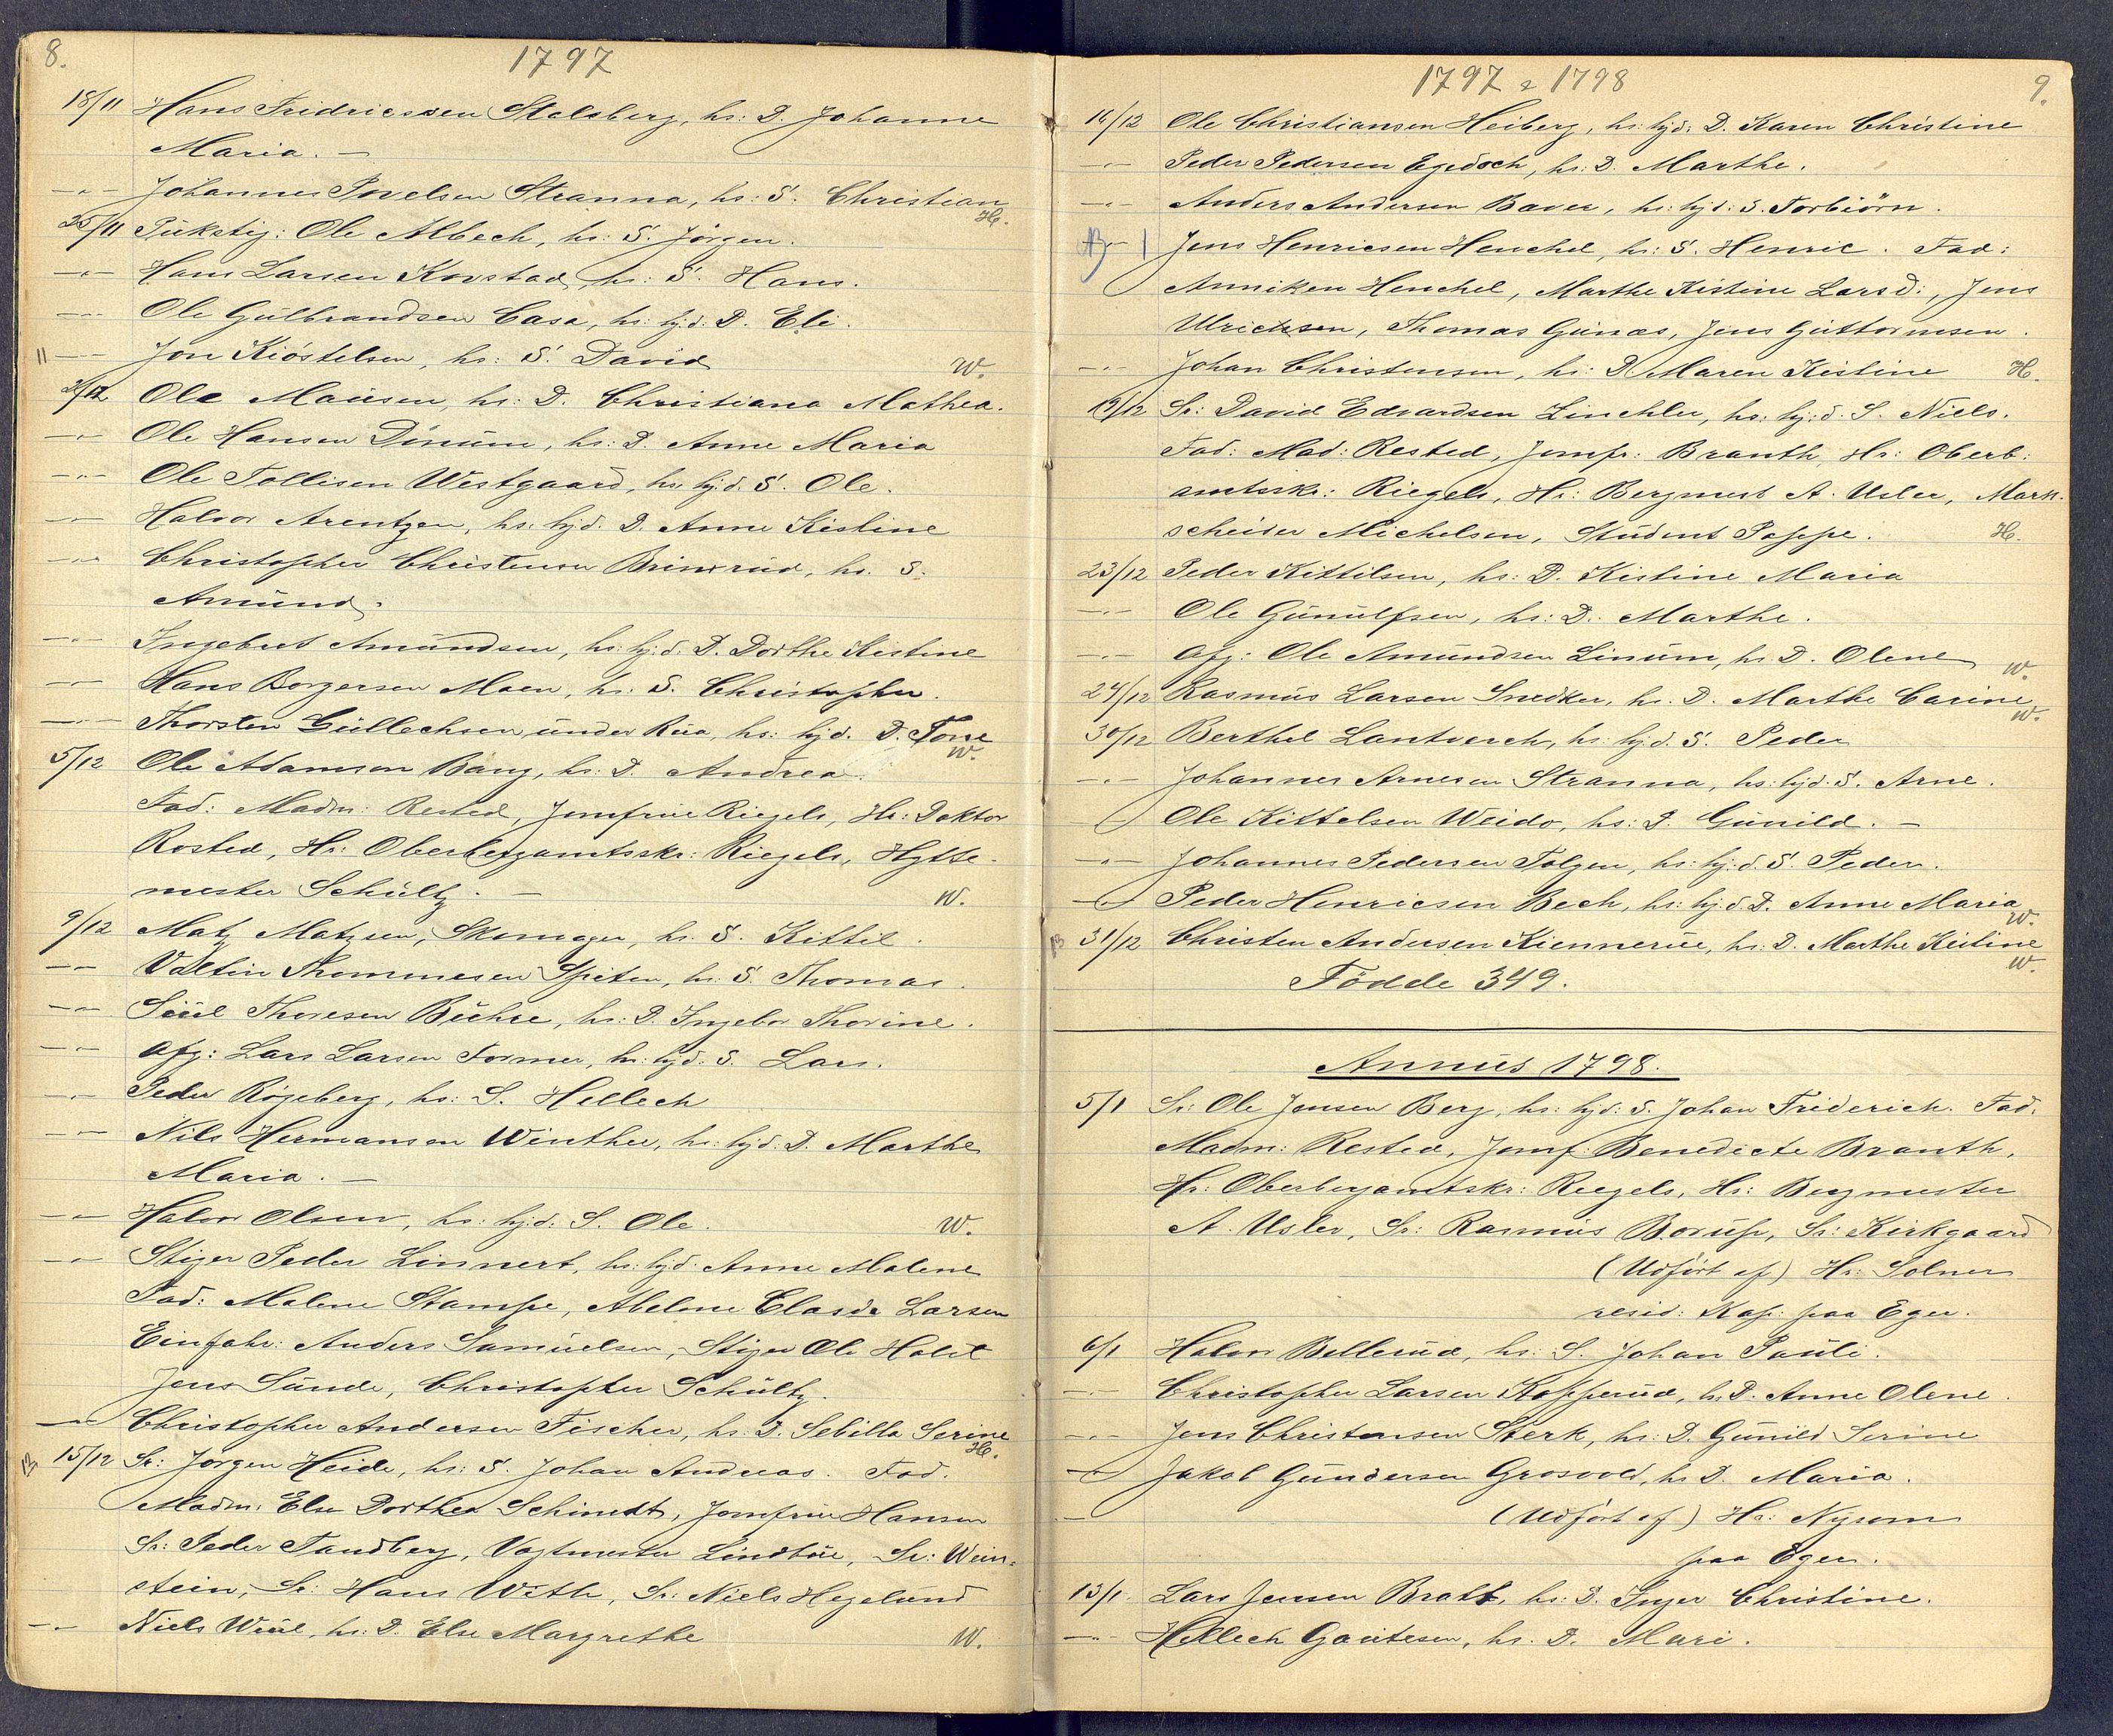 8.
1797
18/11 Hans Fridricssen Stalsberg, hs: D. Johanne
Maria. —
—〃— Johannes Povelsen Stranna, hs: S. Christian
H.
25/11 Pukstig: Ole Albech, hs: S. Jörgen.
—〃— Hans Larsen Korstad, hs: S. Hans.
—〃— Ole Gülbrandsen Casa, hs: hjd: D. Eli.
11 —〃— Jon Kiöstelsen, hs: S. David W.
2/12 Ole Maüsen, hs: D. Christiana Mathea.
—〃— Ole Hansen Dinüm, hs: D. Anne Maria
—〃— Ole Tollisen Westgaard, hs. hjd. S. Ole.
—〃— Halvor Arentzen, hs. hjd. D. Anne Kistine
—〃— Christopher Christensen, hs. S.
Amünd.
—〃— Ingebret Amündsen, hs: hjd: D. Dorthe Kistine
—〃— Hans Borgersen Moen, hs: S. Christopher.
—〃— Thorsten Güllechsen ünder Rüa, hs: hjd. D. Tone
W.
5/12 Ole Adamsen Bang, hs: D. Andrea.
Fad: Madm: Rested, Jomfrue Riegels, Hr: Doktor
Rosted, Hr: Oberbergamtsskr: Riegels, Hytte-
mester Schültz. — W.
9/12 Matz Matzsen, Skomager, hs. S. Kittil.
—〃— Valtin Thommesen Spiten, hs: S. Thomas.
—〃— Siül Thoresen Bühre, hs: D. Ingebor Thorine.
—〃— Afg: Lars Larsen Former, hs: hjd. S. Lars.
—〃— Peder Rögeberg, hs: S. Hellech
—〃— Nils Hermansen Winther, hs: hjd: D. Marthe
Maria. —
—〃— Halvor Olsen, hs: hjd: S. Ole. W.
—〃— Stiger Peder Linnert, hs: hjd: Anne Malene
Fad: Malene Stampe, Abelone Clasd: Larsen
Einfahr: Anders Samüelsen, Stiger Ole Holst
Jens Sünde, Christopher Schültz.
—〃— Christopher Andersen Fischer, hs: D. Sebilla Serine
H.
13 15/12 Sr: Jörgen Heide, hs: S. Johan Andreas. Fad.
Madm: Else Dorthea Schimdt, Jomfrue Hansen
Sr: Peder Tandberg, Vagtmester Lindböe, Sr: Wein-
stein, Sr: Hans With, Sr: Niels Hegelünd
—〃— Niels Wiül, hs: D. Else Margrethe W.
1797 & 1798
9.
16/12 Ole Christiansen Heiberg, hs: hjd: D. Karen Christine
—〃— Peder Pedersen Egedoch, hs: D. Marthe.
—〃— Anders Andersen Baver, hs: hjd: S. Torbiörn.
13 —〃— Jens Henricsen Henchel, hs: S. Henric. Fad:
Anniken Henchel, Marthe Kistine Larsd:, Jens
Ulrichsen, Thomas Günas, Jens Güttormsen.
—〃— Johan Christensen, hs: D. Maren Kistine H.
19/12 Sr: David Edvardsen Linchler, hs. hj:d. S. Niels.
Fad: Mad: Rested, Jomfr: Branth, Hr: Oberb:
amtsskr: Riegels, Hr: Bergmest A. Usler, Mark-
scheider Michelsen, Stüdent Poppe. H.
23/12 Peder Kittilsen, hs: D. Kistine Maria
—〃— Ole Günülfsen, hs: D. Marthe.
—〃— Afg: Ole Amündsen Linüm, hs D. Olene W.
24/12 Rasmüs Larsen Snedker, hs. D. Marthe Carine
W.
30/12 Berthel Lantverch, hs: hjd. S. Peder
—〃— Johannes Arnesen Stranna, hs: hjd: S. Arne.
—〃— Ole Kittelsen Weido, hs: D. Günild. —
—〃— Johannes Pedersen Tolgen, hs: hj:d. S. Peder.
—〃— Peder Henricsen Bech, hs: hj:d. D. Anne Maria
W.
13 31/12 Christen Andersen Kiennerüe, hs: D. Marthe Kistine
W.
Födde 349.
Annüs 1798.
5/1 Sr: Ole Jensen Berg, hs: hjd: S. Johan Friderich. Fad.
Madm: Rested, Jomf: Benedicte Branth,
Hr: Oberbergamtskr: Riegels, Hr: Bergmester
A. Usler, Sr: Rasmüs Borüp, Sr: Kirkgaard
(Udfört af) Hr: Solner
resid: Kap: paa Eger.
6/1 Halvor Bellerüd, hs: S. Johan Paüli.
—〃— Christopher Larsen Kopperüd, hs: D. Anne Olene.
—〃— Jens Christensen Sterk, hs: D. Günild Serine
—〃— Jakob Gündersen Grosvold, hs D. Maria.
—〃— (Udfört af) Hr: Nysom
paa Eger.
13/1. Lars Jensen Bratt, hs: D. Inger Christine.
—〃— Hellech Gaütesen, hs. D. Mari.